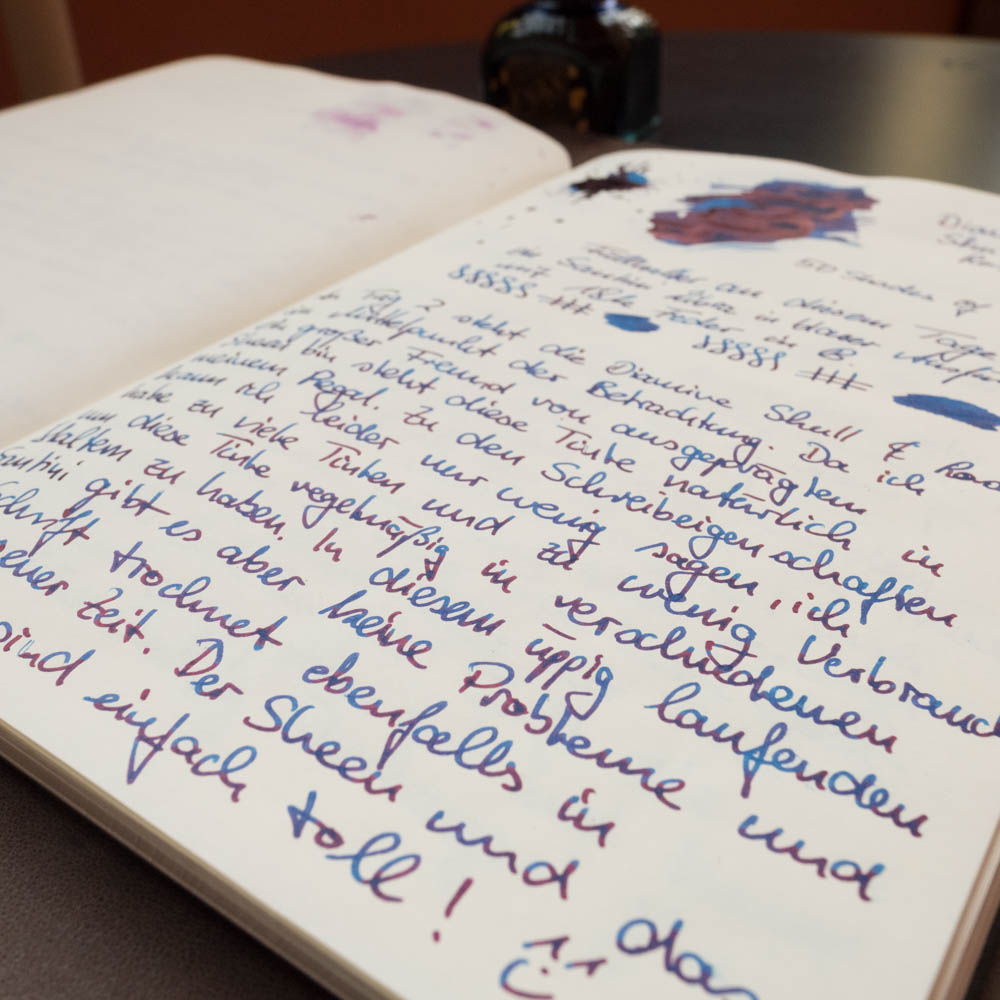 Diam
50 Shades of
Füllhalter an diesem Tage
in
mit 18k Feder in B.
Tag 2 steht die Diamine Skull & Ros
im Mittelpunkt der Betrachtung. Da ich
großer Freund von ausgeprägtem
Sheen bin steht diese Tinte natürlich in
meinem Regal. Zu den Schreibeigenschaften
kann ich leider nur wenig sagen, ich
habe zu viele Tinten und zu wenig Verbrauch
um diese Tinte regelmäßig in verschiedenen
Haltern zu haben. In diesem üppig laufenden
gibt es aber keine Probleme und
Schrift trocknet ebenfalls in
Zeit. Der Sheen und das
sind einfach toll!